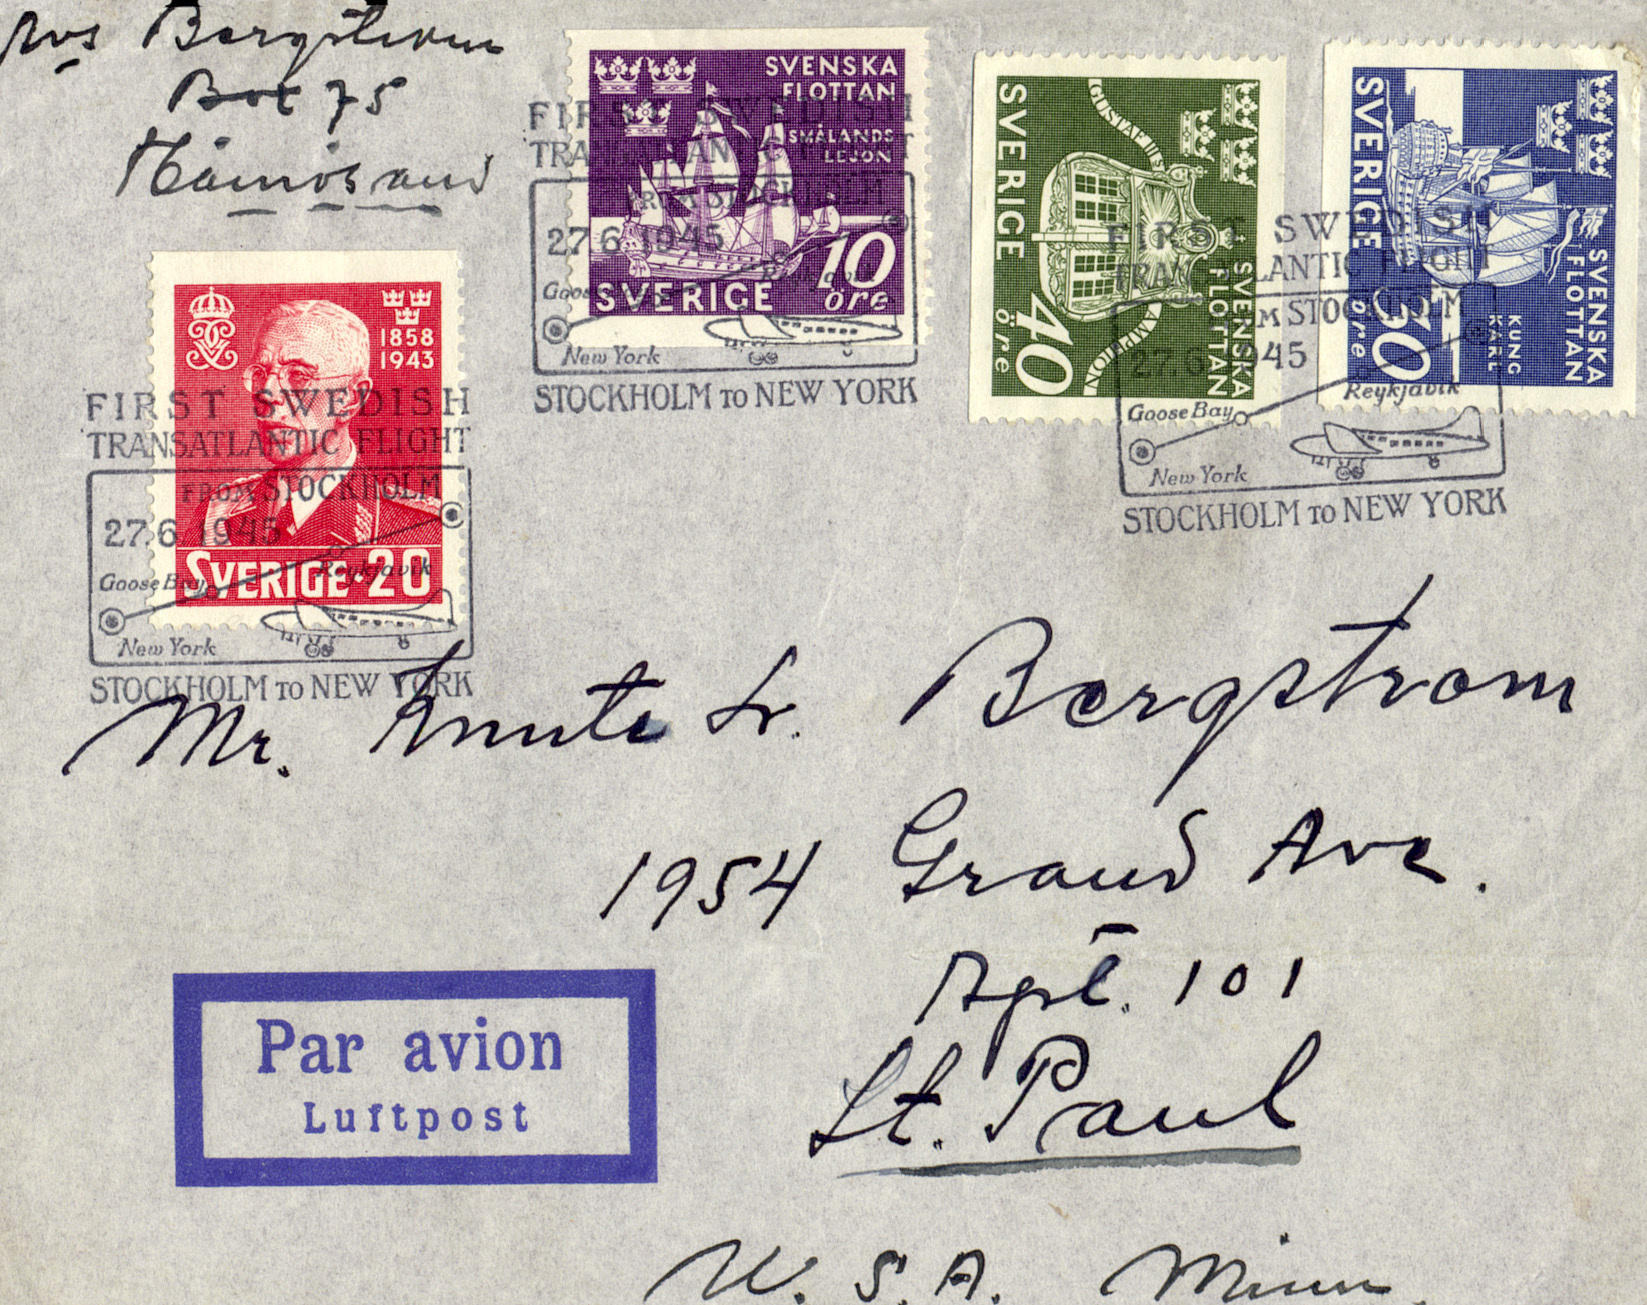 Bergstrom
Box 75
Härnösand
SVENSKA
FLOTTAN
SMÅLANDS
LEJON
10
öre
SVERIGE
FIRST SWEDISH
TRANSATLANTIC FLIGHT
FROM STOCKHOLM
27.6.1945
Goose Bay
Reykjavik
New York
STOCKHOLM TO NEW YORK
SVERIGE
GUSTAF III:S
ÄMPHION
SVENSKA
FLOTTAN
40
öre
SVERIGE
SVENSKA
FLOTTAN
KUNG
KARL
60
öre
FIRST SWEDISH
TRANSATLANTIC FLIGHT
FROM STOCKHOLM
27.6.1945
Goose Bay
Reykjavik
New York
STOCKHOLM TO NEW YORK
1858
1943
SVERIGE·20
FIRST SWEDISH
TRANSATLANTIC FLIGHT
FROM STOCKHOLM
27.6.1945
Goose Bay
Reykjavik
New York
STOCKHOLM TO NEW YORK
Mr. Knute Sr. Bergstrom
1954 Grand Ave.
Apt. 101
St. Paul
U.S.A. Minn.
Par avion
Luftpost